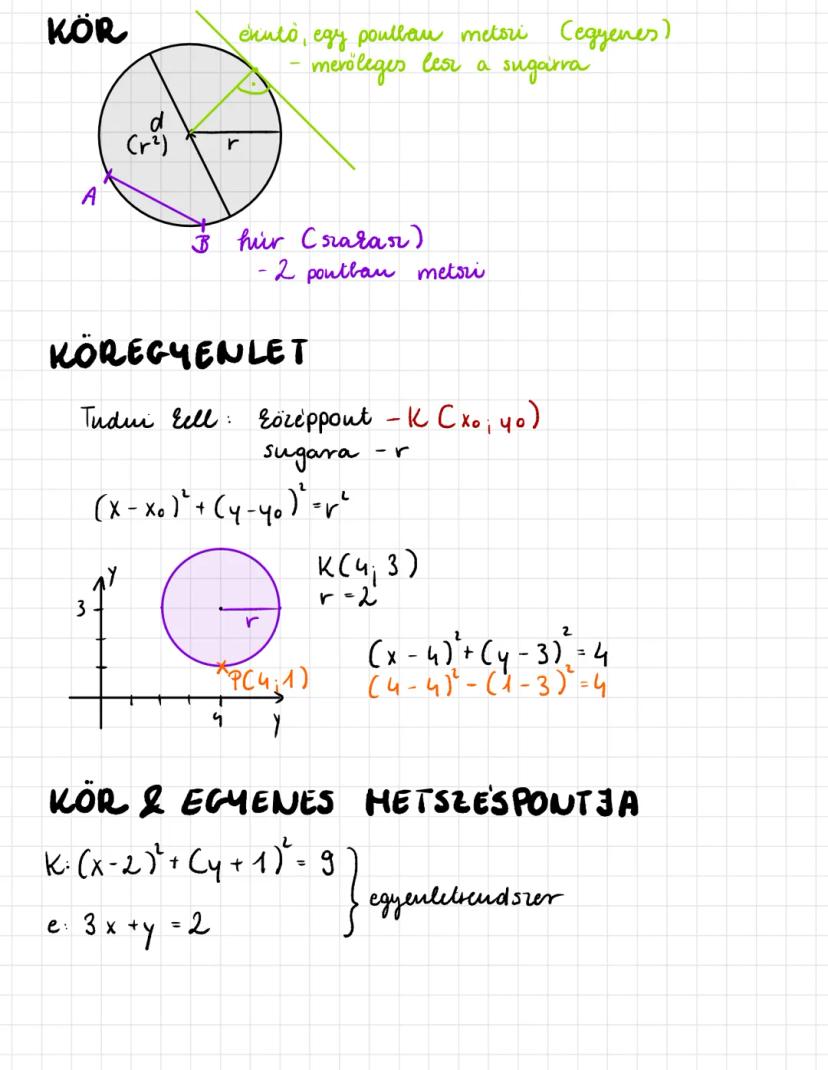 KÖR
érintő, egy pontban metszi (egyenes)
- merőleges lesz a sugárra
d
(r²)
r
A
B
húr (szakasz)
- 2 pontban metszi
KÖREGYENLET
Tudni kell: középpont - K (x₀; y₀)
sugara - r
(x - x₀)² + (y - y₀)² = r²
y
3
r
P(4;1)
4
y
K(4; 3)
r = 2
(x - 4)² + (y - 3)² = 4
(4 - 4)² - (1 - 3)² = 4
KÖR & EGYENES METSZÉSPONTJA
K: (x-2)² + (y + 1)² = 9
e: 3x + y = 2
egyenletrendszer